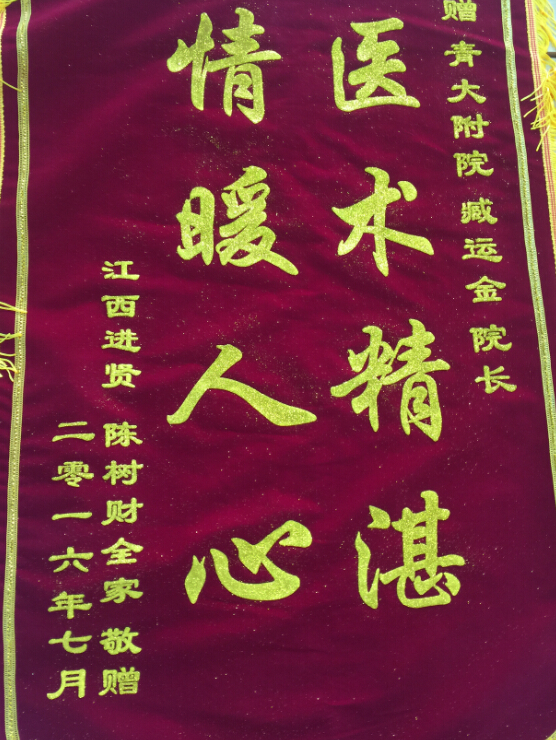 赠 青大附院 臧运金 院长
医术精湛
情暖人心
江西进贤 陈树财全家 敬赠
二零一六年七月